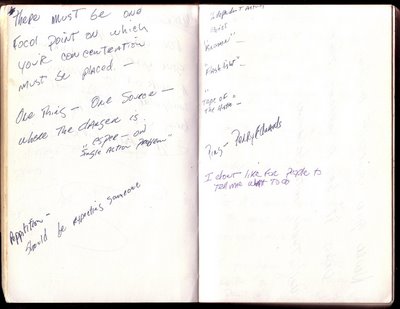 There must be one
Focal point on which
your concentration
must be placed. —
One Thing — One Source —
where the danger is.
on
Single Action Problem"
Apparition —
should be expecting someone
"Flashlight" —
"
Tape of
the
Ring — Perry Edwards
I don't like for people to
tell me what to do